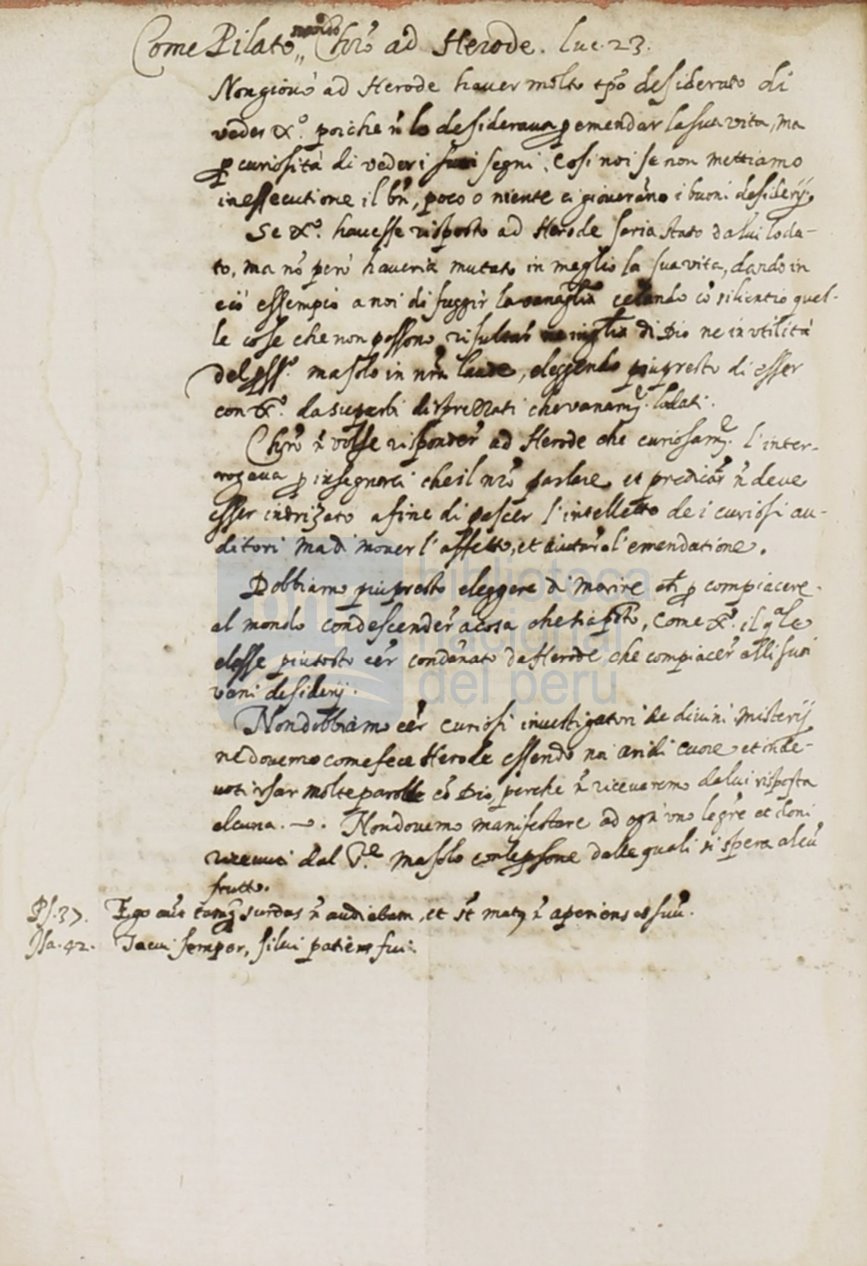 Come Pilato mandò Chrõ ad Herode. Luc. 23.
Non giovò ad Herode haver molto tpõ desiderato di
veder Xº. poiche ñ lo desiderava p emendar la sua vita, ma
p curiosità di veder i suoi segni. Cosi noi se non mettiamo
in essecutione il bñ, poco o niente ci gioverãno i buoni desiderij.
Se Xº. havesse risposto ad Herode saria stato da lui loda-
to, ma nõ però haveria mutato in meglio la sua vita, dando in
ciò essempio a noi di fuggir la vanaglia celando cõ silientio quel-
le cose che non possono risultar in glia di Dio ne in utilità
del pssº. ma solo in nrã laude, eleggendo piupresto di esser
con Xº. da superbi disprezzati che vanamẽ. lodati.
Chrõ ñ volse risponder ad Herode che curiosamẽ. l'inter-
rogava p insegnarci che il nrõ parlare et predicar ñ deve
esser indrizato a fine di pascer l'intelletto de i curiosi au-
ditori ma di mover l'affetto, et aiutar a l'emendatione.
Dobbiamo piupresto eleggere di morire p compiacere
al mondo condescender a cosa che sia pctõ, come Xº. il qle
elesse piutosto eẽr condẽnato da Herode che compiacer alli suoi
vani desiderij.
Non dobbiamo eẽr curiosi investigatori de divini misterij
ne dovemo come fece Herode essendo noi aridi cuore et inde-
voti usar molte parolle cõ Dio, perche ñ riceveremo da lui risposta
alcuna. Non dovemo manifestare ad ogn'uno le grẽ et doni
ricevuti dal Sre. ma solo con le psone dalle quali si spera alcũ
frutto.
Ps. 37. Ego autẽ tamq surdus ñ audiebam, et st mutq ñ aperiens os suũ.
Isa. 42. Tacui semper, silui patiens fui.
biblioteca
nacional
del perú